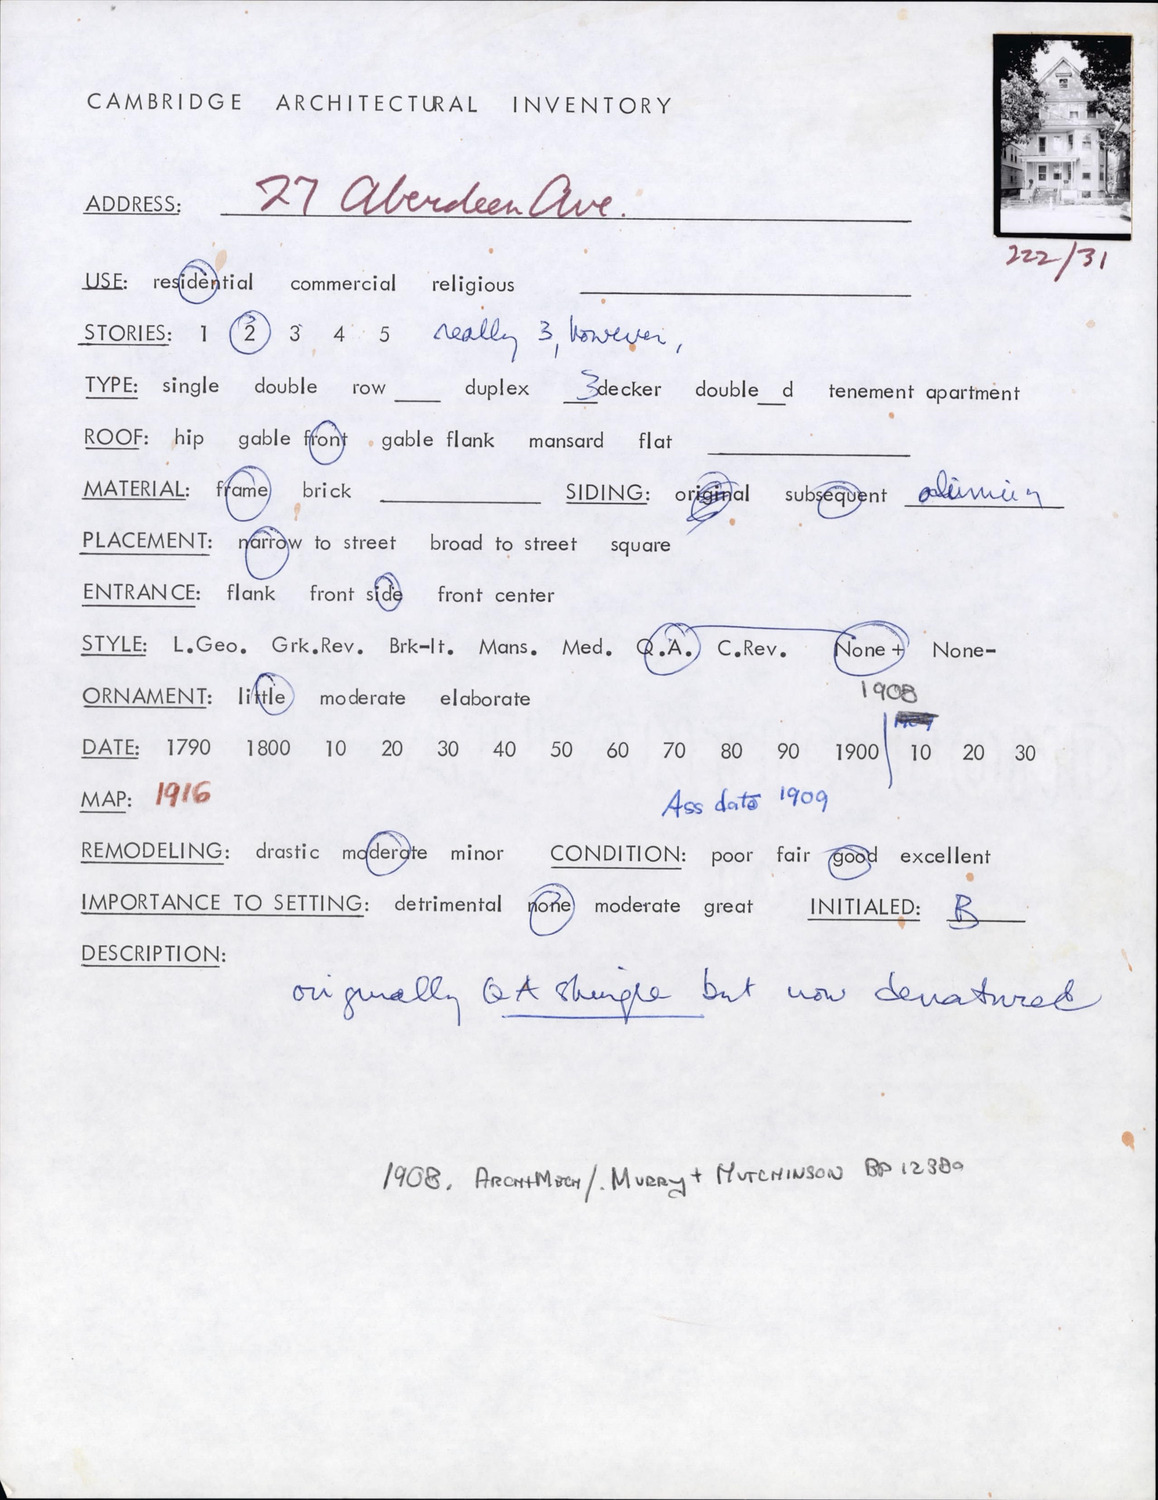 CAMBRIDGE ARCHITECTURAL INVENTORY
ADDRESS: 27 Aberdeen Ave.
222/31
USE: residential commercial religious
STORIES: 1 2 3 4 5 really 3, however,
TYPE: single double row ___ duplex 3decker double__d tenement apartment
ROOF: hip gable front gable flank mansard flat
MATERIAL: frame brick SIDING: original subsequent
PLACEMENT: narrow to street broad to street square
ENTRANCE: flank front side front center
STYLE: L.Geo. Grk.Rev. Brk-It. Mans. Med. Q.A. C.Rev. None+ None-
ORNAMENT: little moderate elaborate 1908
DATE: 1790 1800 10 20 30 40 50 60 70 80 90 1900 10 20 30
MAP: 1916 Ass date 1909
REMODELING: drastic moderate minor CONDITION: poor fair good excellent
IMPORTANCE TO SETTING: detrimental none moderate great INITIALED: B
DESCRIPTION:
originally QA shingle but now denatured
1908. MURRAY + HUTCHINSON BP 12380